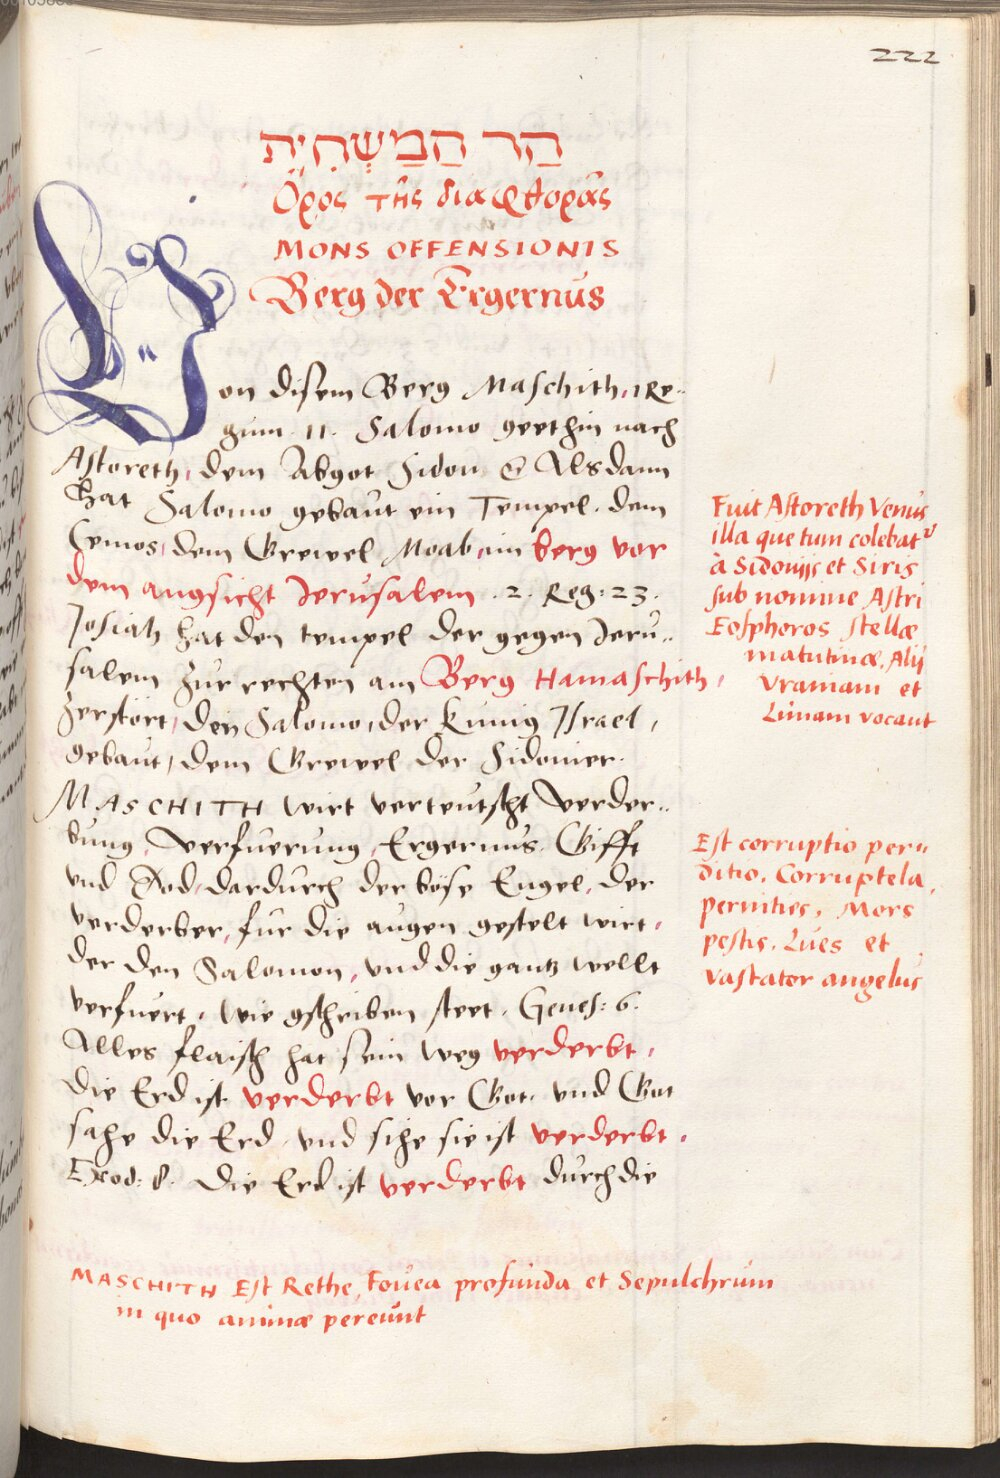 222
הַר הַמַּשְׁחִית
Ὄρος τῆς διαφθορᾶς
MONS OFFENSIONIS
Berg der Ergernus
Von disem Berg Maschith, 1 Re-
gum. 11. Salomo geethin nach
Astoreth, dem Abgot Sidon & Alsdann
hat Salomo gebaut ein Tempel. dem
Cemos, dem Grewel Moab, im berg vor
dem angsicht Jerusalem. 2. Reg: 23.
Josiah hat den tempel der gegen Jeru-
salem zur rechten am Berg Hamaschith,
zerstört, den Salomo, der Kunig Israel,
gebaut, dem Grewel der Sidonier.
MASCHITH wirt verteutscht Verder-
bung, Verfuerung, Ergernus. Gifft
vnd Tod, dardurch der böse Engel, der
verderber, fur die augen gestelt wirt,
der den Salomon, vnd die gantz wellt
verfuert. wie gschriben steet. Genes: 6.
Alles flaisch hat sein weg verderbt,
die Erd ist verderbt vor Got. vnd Got
sahe die Erd, vnd sihe sie ist verderbt.
Exod: 8. die Erd ist verderbt durch die
Fuit Astoreth Venus
illa que tum colebatr
à Sidonijs et Siris
sub nomine Astri
Eosphoros stellæ
matutinæ, Alij
Vraniam et
Lunam vocant
Est corruptio per-
ditio. Corruptela,
pernities, Mors
pestis. Lues et
Vastator angelus
MASCHITH Est Rethe, fouea profunda et Sepulchrum
in quo animæ pereunt